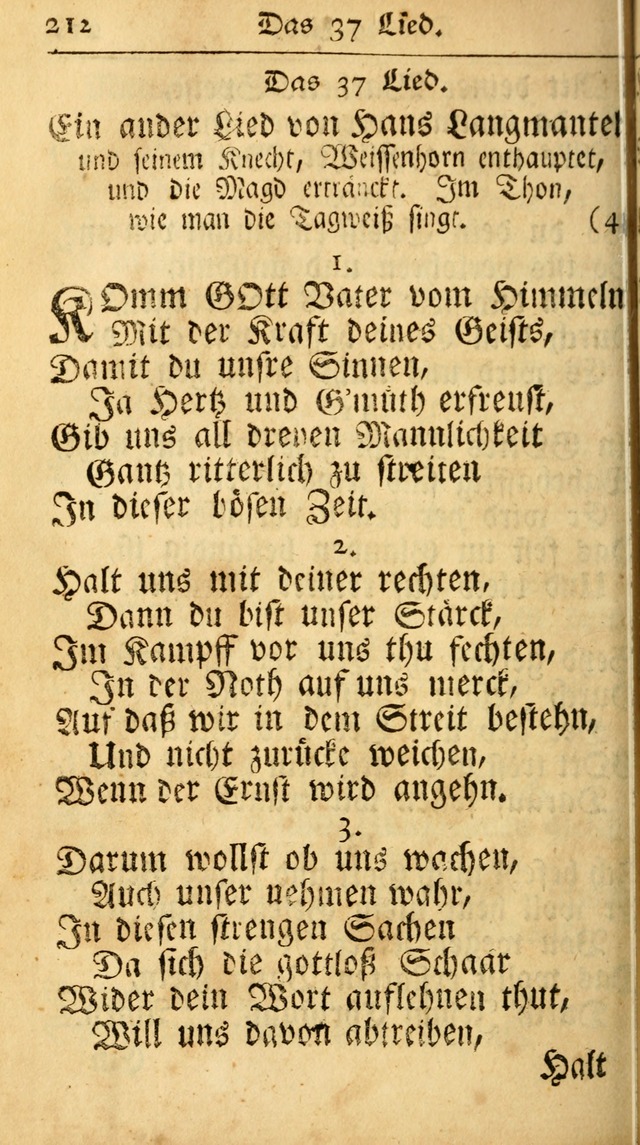 212 Das 37 Lied.
Das 37 Lied.
Ein ander Lied von Hans Langmantel
und seinem Knecht, Weissenhorn enthauptet,
und die Magd ertränckt. Im Thon,
wie man die Tagweiß singt. (4
1.
KOmm GOtt Vater vom Himmeln
Mit der Kraft deines Geists,
Damit du unsre Sinnen,
Ja Hertz und G'müth erfreust,
Gib uns all dreyen Mannlichkeit
Gantz ritterlich zu streiten
In dieser bösen Zeit.
2.
Halt uns mit deiner rechten,
Dann du bist unser Stärck,
Im Kampff vor uns thu fechten,
In der Noth auf uns merck,
Auf daß wir in dem Streit bestehn,
Und nicht zurücke weichen,
Wenn der Ernst wird angehn.
3.
Darum wollst ob uns wachen,
Auch unser nehmen wahr,
In diesen strengen Sachen
Da sich die gottloß Schaar
Wider dein Wort auflehnen thut,
Will uns davon abtreiben,
Halt